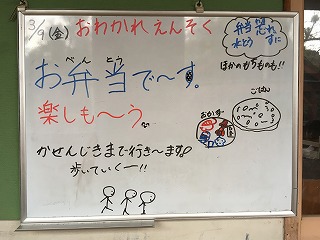 3/9(金) おわかれえんそく
弁当 忘れ
水とう ずに
ほかのもちものも!!
べん とう
お弁当で〜す。
楽しも〜う。
おかず
ごはん
かせんじきまで行き〜ます。
歩いていくー!!